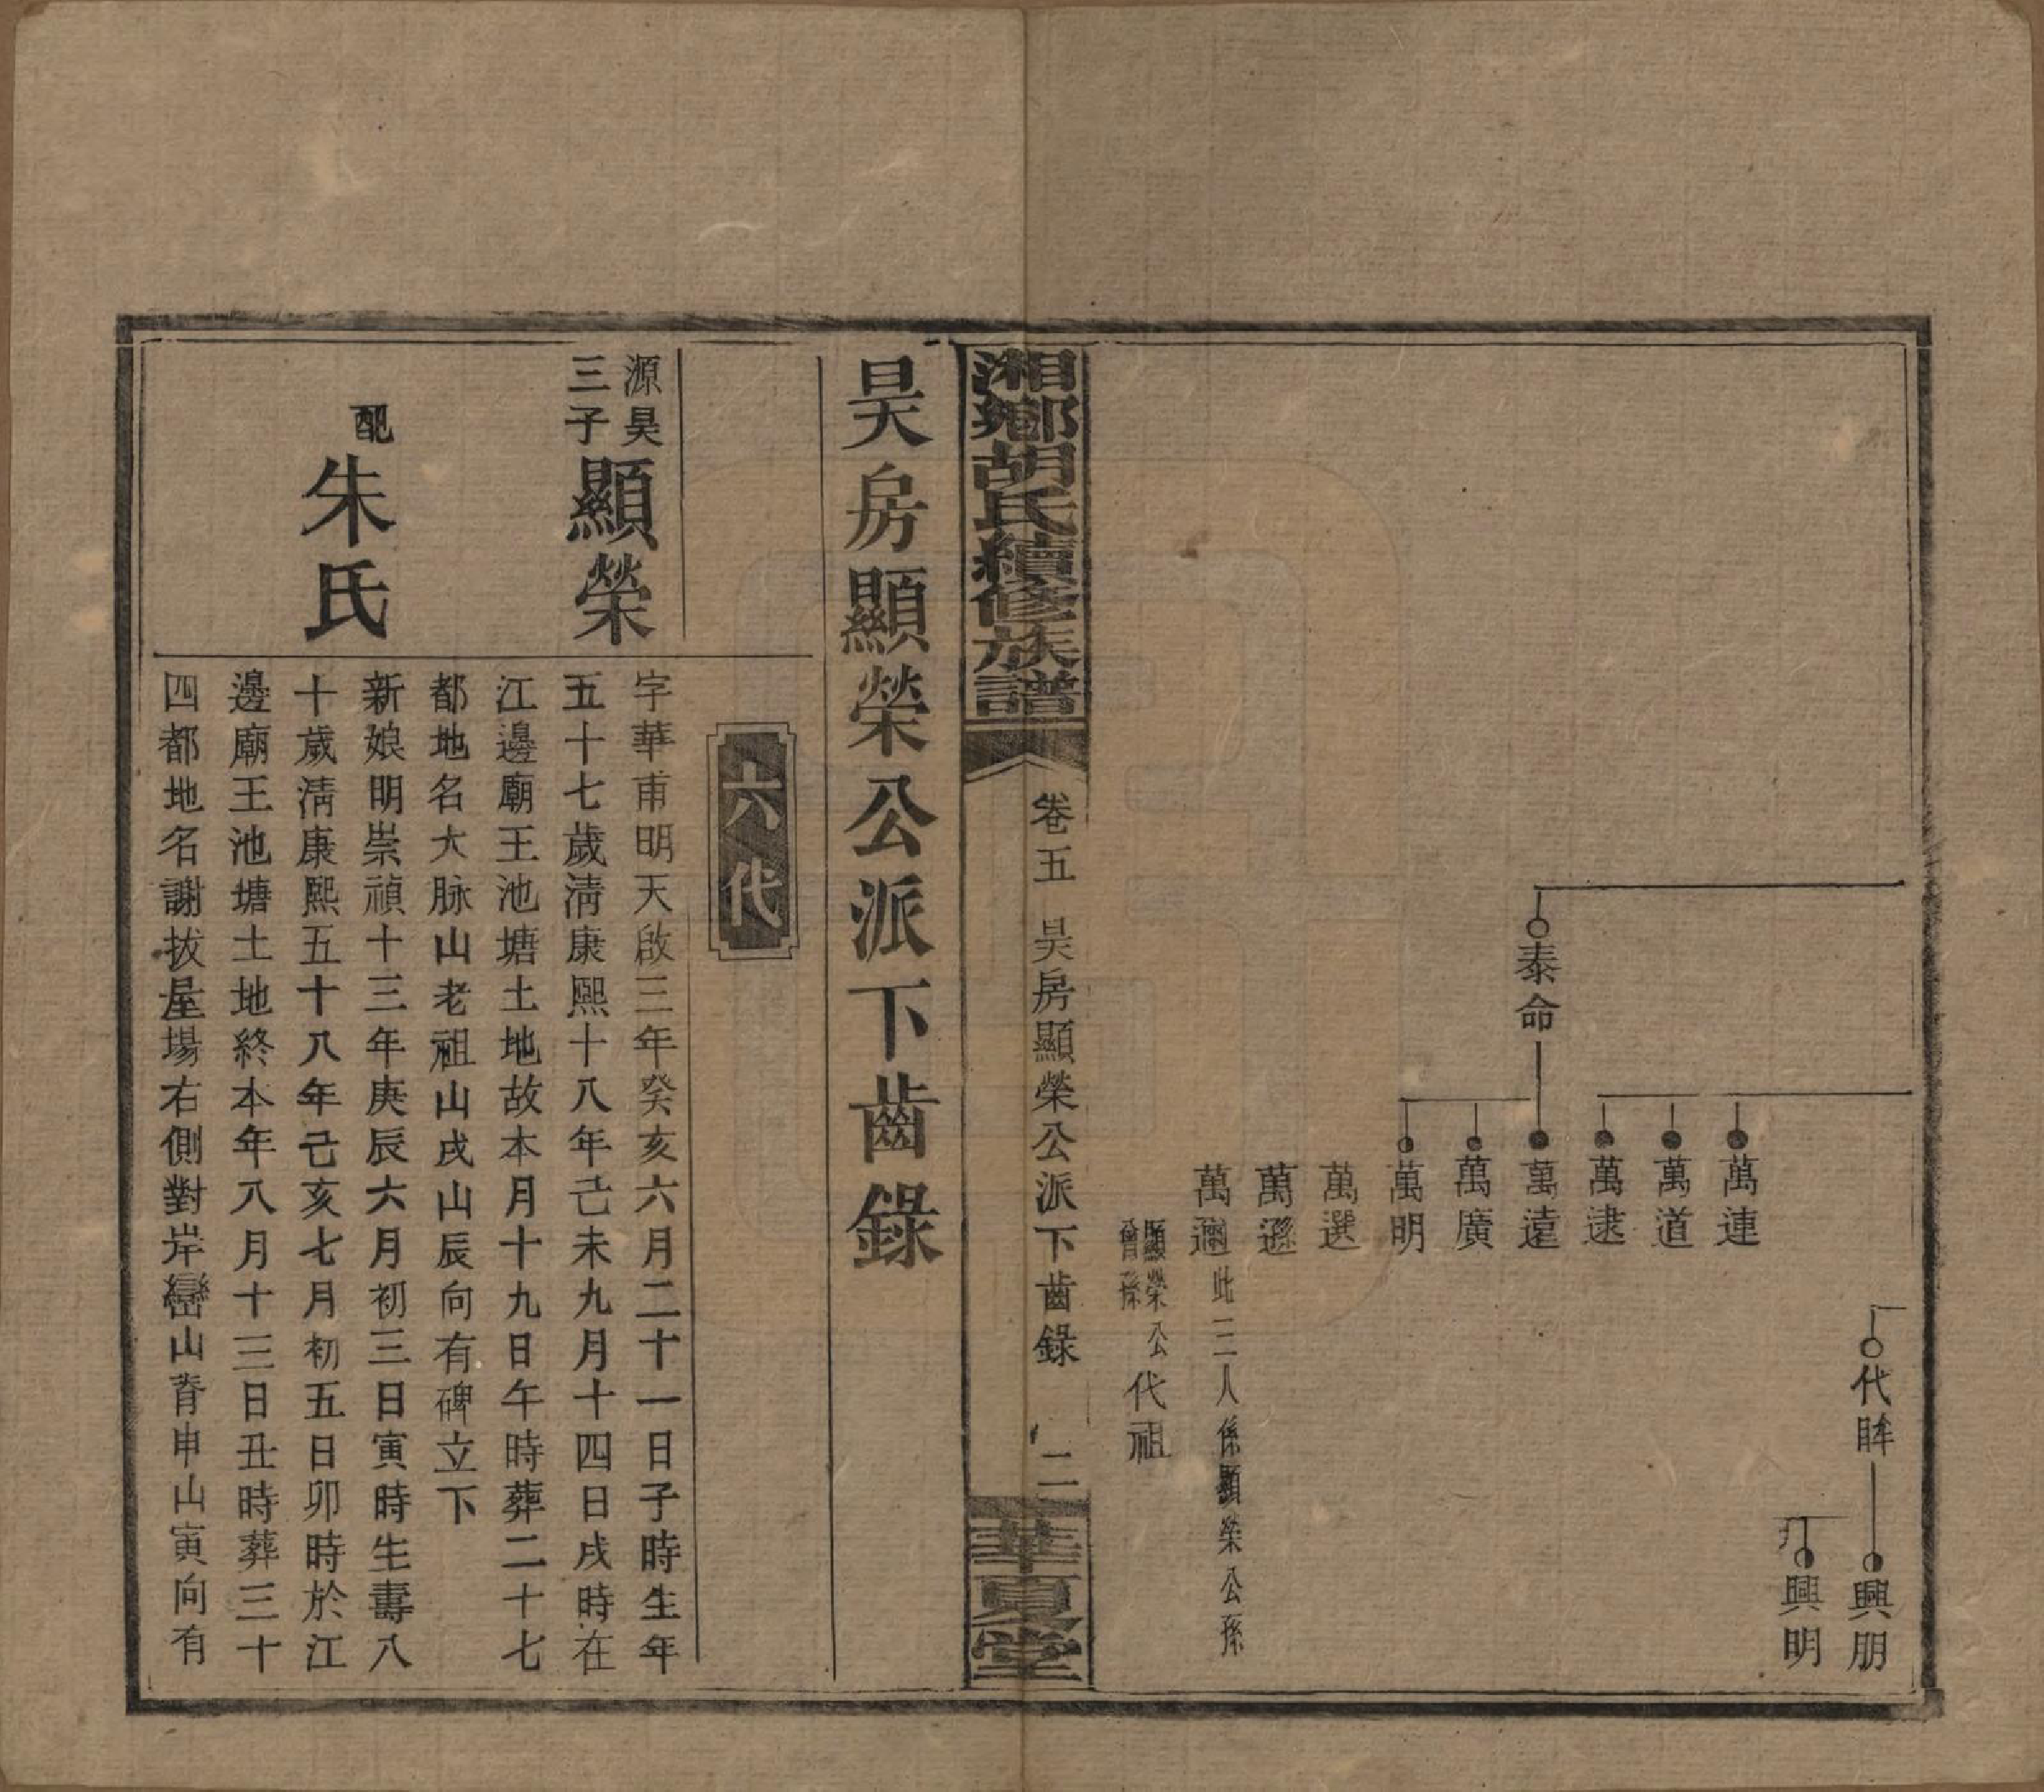 代眸
興朋
興明
萬連
萬道
萬逮
泰命
萬遠
萬廣
萬明
萬選
萬遜
萬邇 此三人係顯榮公孫
顯榮公
曾孫
代祖
湘鄉胡氏續修族譜
卷五 昊房顯榮公派下齒錄 二
華夏堂
昊房顯榮公派下齒錄
六代
源昊
三子
顯榮
字華甫明天啟三年癸亥六月二十一日子時生年
五十七歲清康熙十八年己未九月十四日戌時在
江邊廟王池塘土地故本月十九日午時葬二十七
都地名大脉山老祖山戌山辰向有碑立下
配
朱氏
新娘明崇禎十三年庚辰六月初三日寅時生壽八
十歲清康熙五十八年己亥七月初五日卯時於江
邊廟王池塘土地終本年八月十三日丑時葬三十
四都地名謝拔屋場右側對岸巒山脊申山寅向有